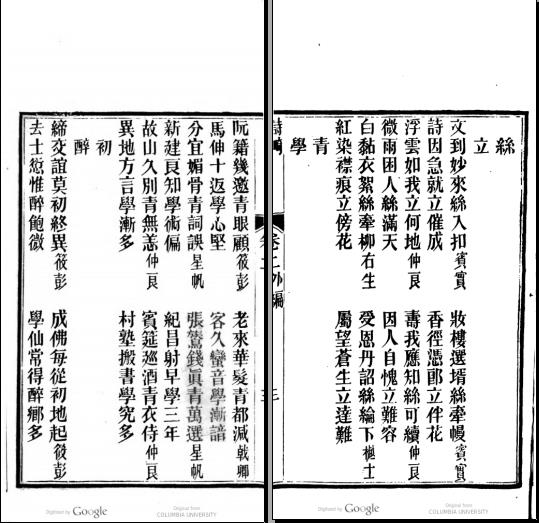 絲
立
文到妙來絲入扣 賓實 妝樓選壻絲牽幔 賓實
詩因急就立催成 香徑憑郎立伴花
浮雲如我立何地 仲良 壽我應知絲可續 仲良
微雨困人絲滿天 因人自愧立難容
白黏衣絮絲牽柳 右生 受恩丹詔絲綸下 樾士
紅染襟痕立傍花 屬望蒼生立達難
青
學
卷二外編 三
阮籍幾邀青眼顧 筱彭 老來華髮青都減 乾卿
馬伸十返學心堅 客久蠻音學漸諳
分宜媚骨青詞誤 星帆 張鷟錢眞青萬選 星帆
新建良知學術偏 紀昌射早學三年
故山久別青無恙 仲良 賓筵巡酒青衣侍 仲良
異地方言學漸多 村塾搬書學究多
初
醉
締交誼莫初終異 筱彭 成佛每從初地起 筱彭
去士愆惟醉飽微 學仙常得醉鄉多
Digitized by Google
Original from
COLUMBIA UNIVERSITY
Digitized by Google
Original from
COLUMBIA UNIVERSITY